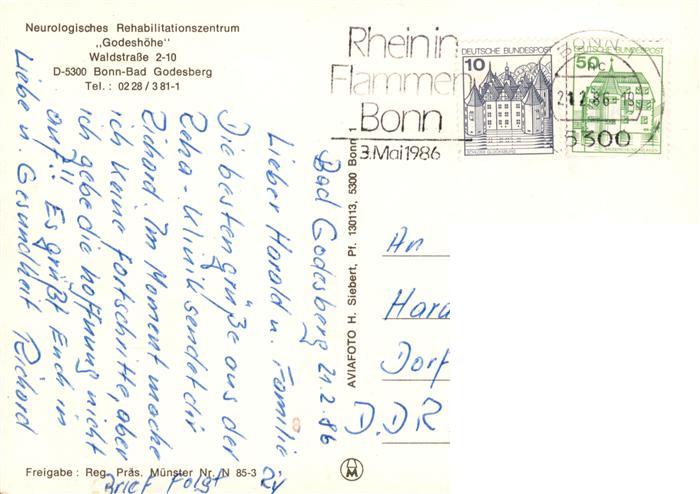 Neurologisches Rehabilitationszentrum
„Godeshöhe"
Waldstraße 2-10
D-5300 Bonn-Bad Godesberg
Tel.: 02 28 / 3 81-1
Bad Godesberg 21.2.86
Lieber Harald u. Familie
Die besten grüße aus der
Reha-Klinik sendet dir
Richard. Im Moment mache
ich keine fortschritte, aber
ich gebe die hoffnung nicht
auf!! Es grüßt Euch in
Liebe u. Gesundheit Richard
Brief folgt
Freigabe: Reg. Präs. Münster Nr. N 85-3
AVIAFOTO H. Siebert, Pf. 130113, 5300 Bonn 1
Rhein in
Flammen
Bonn
3. Mai 1986
DEUTSCHE BUNDESPOST
10
SCHLOSS GLÜCKSBURG
DEUTSCHE BUNDESPOST
50
BONN
21.2.86
5300
An
Hara
Dorf
D.D.R